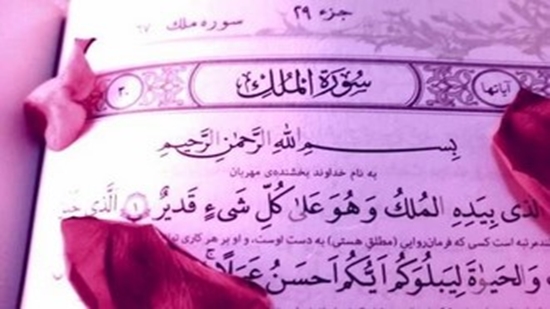 جزء ۲۹ سوره ملک ۶۷
آیاتها سُورَةُ المُلك ۳۰
بِسْمِ اللهِ الرَّحْمٰنِ الرَّحيمِ
به نام خداوند بخشنده‌ی مهربان
بِيَدِهِ المُلكُ وَ هُوَ عَلىٰ كُلِّ شَىءٍ قَديرٌ ۱ الَّذى
است کسی که فرمان‌روایی (مطلق هستی) به دست اوست، و او بر هر کاری
وَ الحَيوٰةَ لِيَبلُوَكُم اَيُّكُم اَحسَنُ عَمَلًا